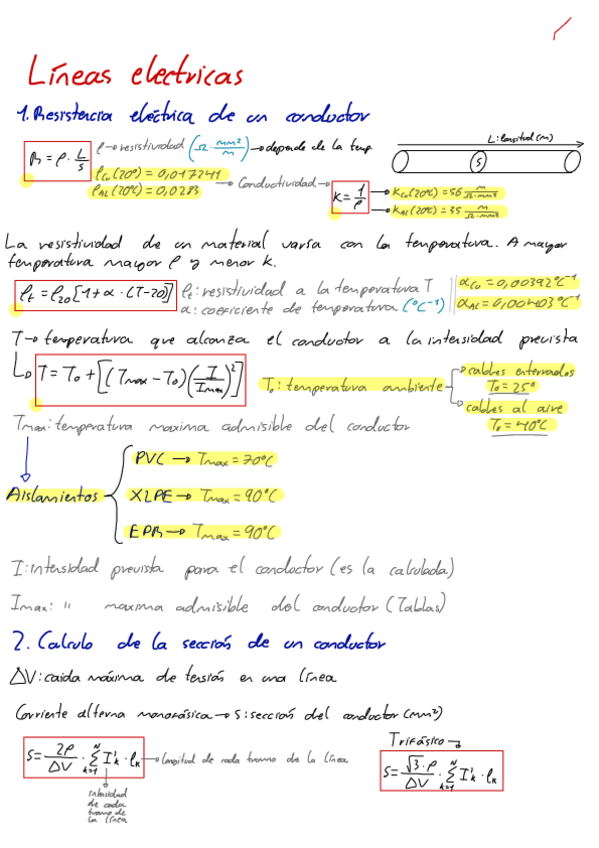 Líneas electricas
1. Resistencia eléctrica de un conductor
R = ρ · L/S
ρ → resistividad (Ω · mm²/m) → depende de la temp
L: longitud (m)
S
ρCu (20º) = 0,017241
ρAL (20ºC) = 0,0283
→ Conductividad →
K = 1/ρ
→ KCu (20ºC) = 56 m/Ω·mm²
→ KAL (20ºC) = 35 m/Ω·mm²
La resistividad de un material varia con la temperatura. A mayor
temperatura mayor ρ y menor K.
ρt = ρ20 [1 + α · (T-20)]
ρt: resistividad a la temperatura T
α: coeficiente de temperatura (ºC⁻¹)
αCu = 0,00392 ºC⁻¹
αAL = 0,00403 ºC⁻¹
T → temperatura que alcanza el conductor a la intensidad prevista
T = To + [(Tmax - To) (I/Imax)²]
To: temperatura ambiente
→ cables enterrados
To = 25º
→ cables al aire
To = 40ºC
Tmax: temperatura maxima admisible del conductor
Aislamientos
PVC → Tmax = 70ºC
XLPE → Tmax = 90ºC
EPR → Tmax = 90ºC
I: intensidad prevista para el conductor (es la calculada)
Imax: " maxima admisible del conductor (Tablas)
2. Calculo de la sección de un conductor
ΔV: caida máxima de tensión en una línea
Corriente alterna monofásica → S: sección del conductor (mm²)
S = 2ρ/ΔV · Σ(k=1, N) I'k · lk
→ longitud de cada tramo de la línea
intensidad
de cada
tramo de
la línea
Trifásico
S = √3·ρ/ΔV · Σ(k=1, N) I'k · lk